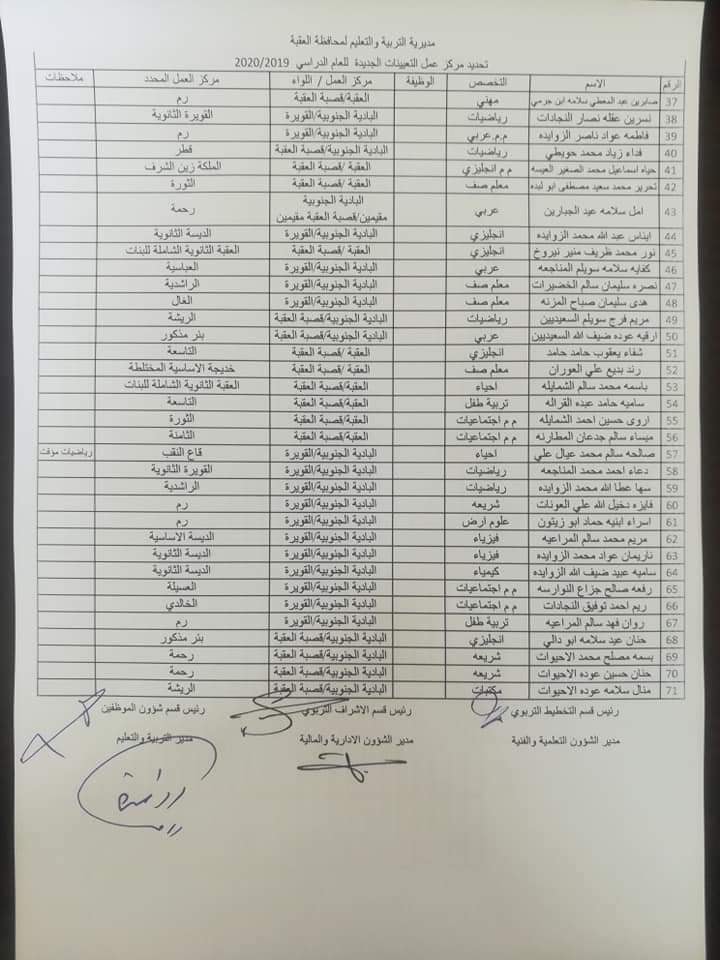 مديرية التربية والتعليم لمحافظة العقبة
تحديد مركز عمل التعيينات الجديدة للعام الدراسي 2020/2019
الرقم الاسم التخصص الوظيفة مركز العمل / اللواء مركز العمل المحدد ملاحظات
37 صابرين عبد المعطي سلامه ابن جرمي مهني العقبة/قصبة العقبة رم
38 نسرين عقله نصار النجادات رياضيات البادية الجنوبية/القويرة القويرة الثانوية
39 فاطمه عواد ناصر الزوايده م.م.عربي البادية الجنوبية/القويرة رم
40 فداء زياد محمد حويطي رياضيات البادية الجنوبية/قصبة العقبة قطر
41 حياه اسماعيل محمد الصغير العيسه م م انجليزي العقبة /قصبة العقبة الملكة زين الشرف
42 تحرير محمد سعيد مصطفى ابو لبده معلم صف العقبة /قصبة العقبة الثورة
43 امل سلامه عيد الجبارين عربي البادية الجنوبية مقيمين/قصبة العقبة مقيمين رحمة
44 ايناس عبد الله محمد الزوايده انجليزي البادية الجنوبية/القويرة الديسة الثانوية
45 نور محمد ظريف منير نيروخ انجليزي العقبة /قصبة العقبة العقبة الثانوية الشاملة للبنات
46 كفايه سلامه سويلم المناجعه عربي البادية الجنوبية/القويرة العباسية
47 نصره سليمان سالم الخضيرات معلم صف البادية الجنوبية/القويرة الراشدية
48 هدى سليمان صباح المزنه معلم صف البادية الجنوبية/القويرة الغال
49 مريم فرج سويلم السعيديين رياضيات البادية الجنوبية/قصبة العقبة الريشة
50 ارقيه عوده ضيف الله السعيديين عربي البادية الجنوبية/قصبة العقبة بئر مذكور
51 شفاء يعقوب حامد حامد انجليزي العقبة /قصبة العقبة التاسعة
52 رند بديع علي العوران معلم صف العقبة /قصبة العقبة خديجة الاساسية المختلطة
53 باسمه محمد سالم الشمايله احياء العقبة/قصبة العقبة العقبة الثانوية الشاملة للبنات
54 ساميه حامد عبده القراله تربية طفل العقبة/قصبة العقبة التاسعة
55 اروى حسين احمد الشمايله م م اجتماعيات العقبة/قصبة العقبة الثورة
56 ميساء سالم جدعان المطارنه م م اجتماعيات العقبة/قصبة العقبة الثامنة
57 صالحه سالم محمد عيال علي احياء البادية الجنوبية/القويرة قاع النقب رياضيات مؤقت
58 دعاء احمد محمد المناجعه رياضيات البادية الجنوبية/القويرة القويرة الثانوية
59 سها عطا الله محمد الزوايده رياضيات البادية الجنوبية/القويرة الراشدية
60 فايزه دخيل الله علي العونات شريعه البادية الجنوبية/القويرة رم
61 اسراء ابنيه حماد ابو زيتون علوم ارض البادية الجنوبية/القويرة رم
62 مريم محمد سالم المراعيه فيزياء البادية الجنوبية/القويرة الديسة الاساسية
63 ناريمان عواد محمد الزوايده فيزياء البادية الجنوبية/القويرة الديسة الثانوية
64 ساميه عبيد ضيف الله الزوايده كيمياء البادية الجنوبية/القويرة الديسة الثانوية
65 رفعه صالح جزاع النوارسه م م اجتماعيات البادية الجنوبية/القويرة العسيلة
66 ريم احمد توفيق النجادات م م اجتماعيات البادية الجنوبية/القويرة الخالدي
67 روان فهد سالم المراعيه تربية طفل البادية الجنوبية/القويرة رم
68 حنان عيد سلامه ابو دالي انجليزي البادية الجنوبية/قصبة العقبة بئر مذكور
69 بسمه مصلح محمد الاحيوات شريعه البادية الجنوبية/قصبة العقبة رحمة
70 حنان حسين عوده الاحيوات شريعه البادية الجنوبية/قصبة العقبة رحمة
71 منال سلامه عوده الاحيوات مكتبات البادية الجنوبية/قصبة العقبة الريشة
رئيس قسم التخطيط التربوي رئيس قسم الاشراف التربوي رئيس قسم شؤون الموظفين
مدير الشؤون التعلمية والفنية مدير الشؤون الادارية والمالية مدير التربية والتعليم